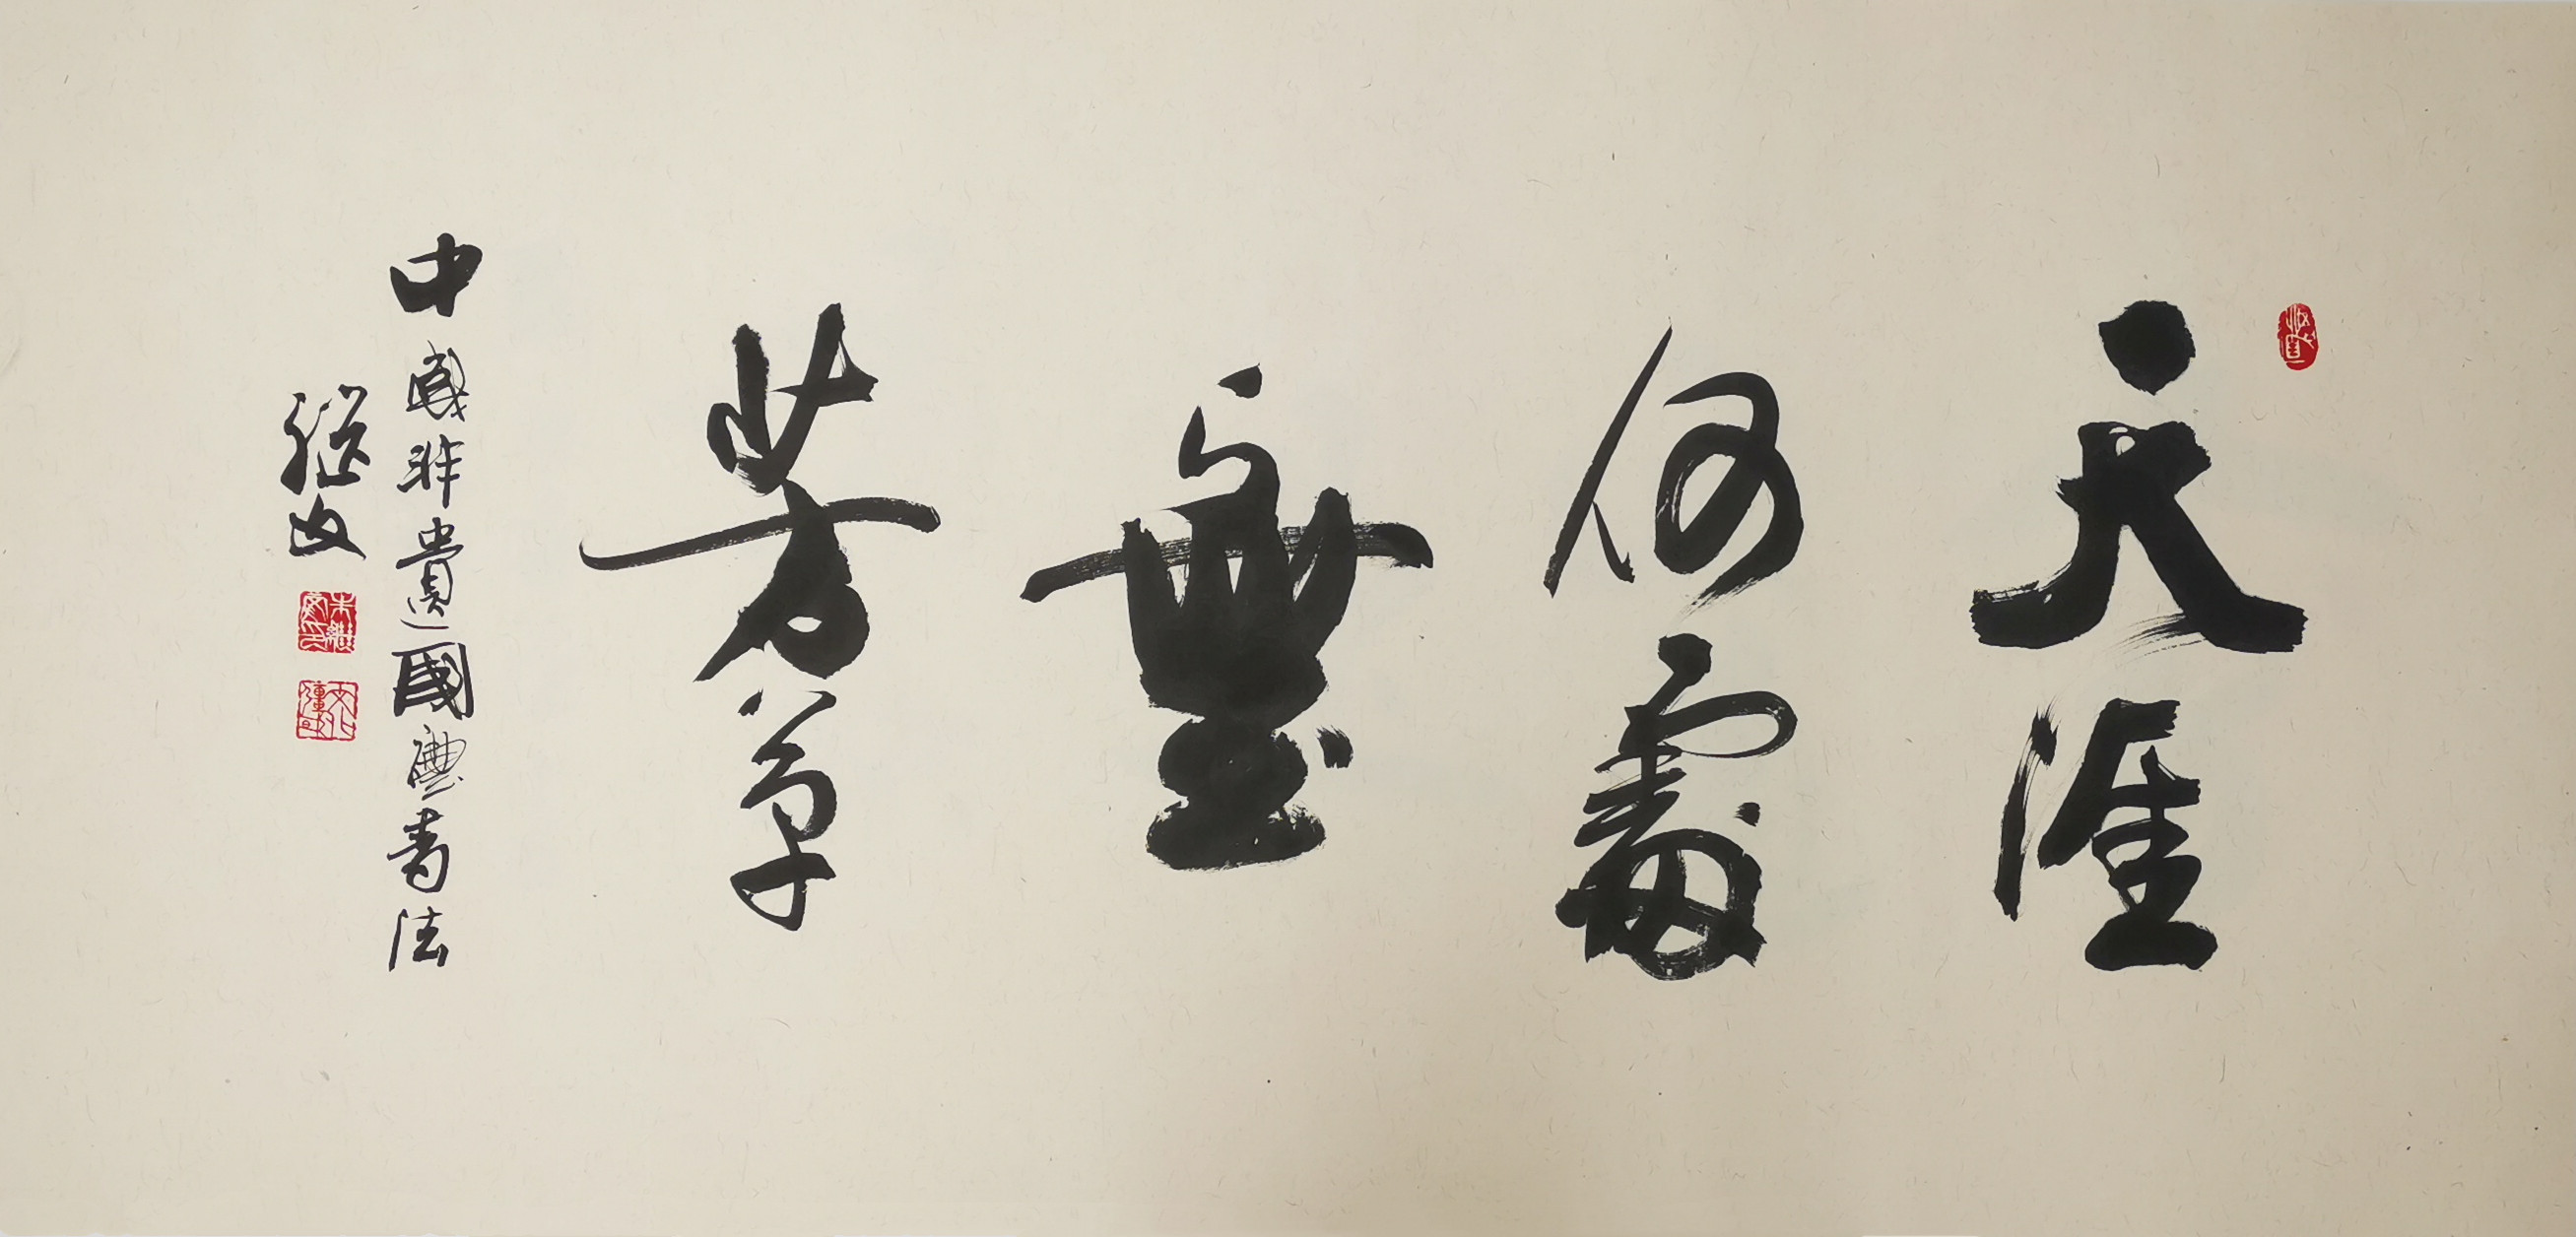 天涯
何處
無
芳草
中國非遺國禮書法
繼文